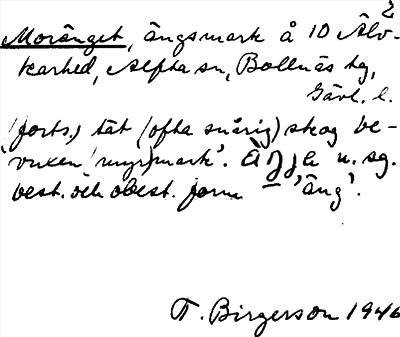 2
Moränget, ängsmark å 10 Älv-
karhed, Alfta sn, Bollnäs tg,
Gävl. l.
(forts.) tät (ofta snårig) skog be-
vuxen (myr)mark'. n. sg.
best. och obest. form 'äng'.
T. Birgerson 1946